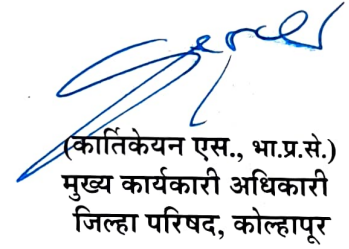 (कार्तिकेयन एस., भा.प्र.से.)
मुख्य कार्यकारी अधिकारी
जिल्हा परिषद, कोल्हापूर